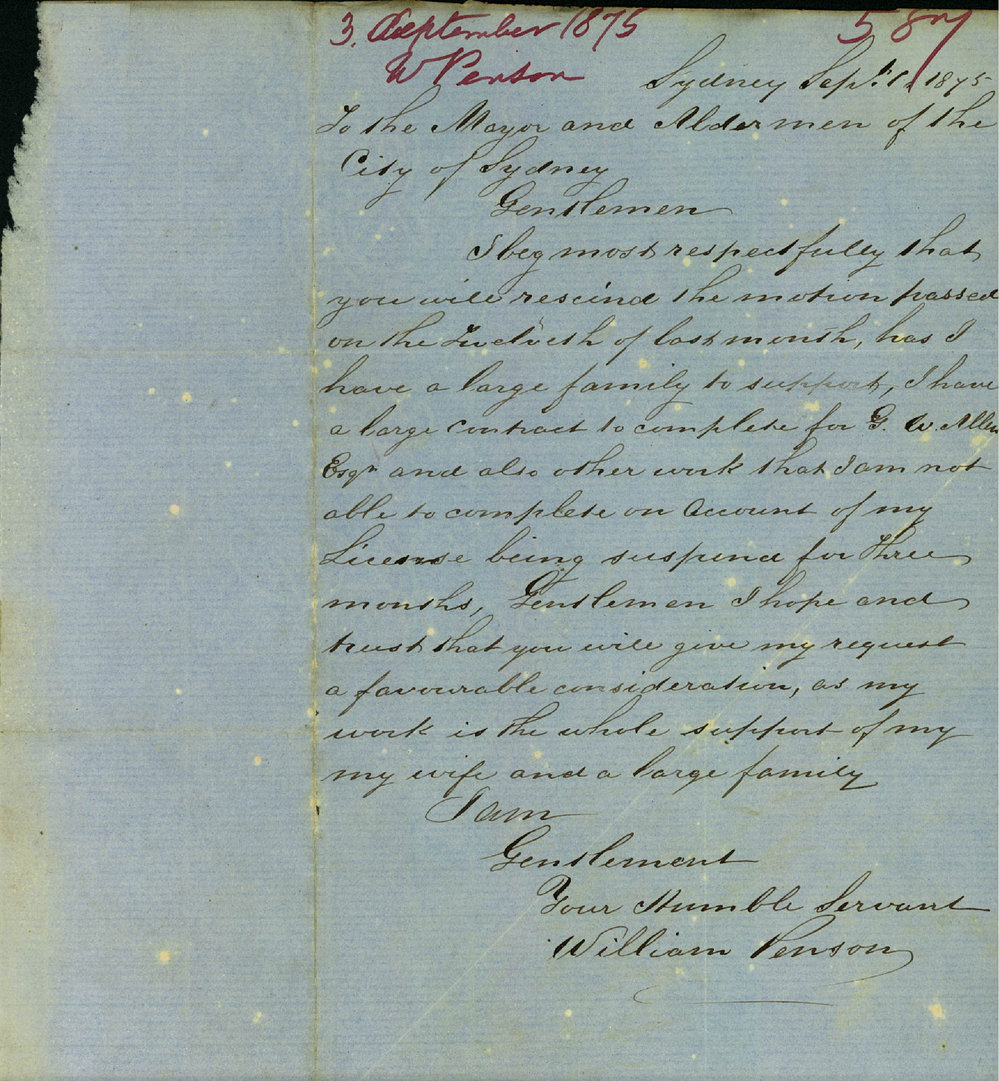 3. September 1875 587
W Penson
Sydney Sept. 1. 1875
To the Mayor and Aldermen of the
City of Sydney
Gentlemen
I beg most respectfully that
you will rescind the motion passed
on the Twelveth of last month, has I
have a large family to support, I have
a large contract to complete for G. W. Allen
Esqr and also other work that I am not
able to complete on account of my
License being suspend for Three
months, Gentlemen I hope and
trust that you will give my request
a favourable consideration, as my
work is the whole support of my
my wife and a large family
I am
Gentlement
Your Humble Servant
William Penson